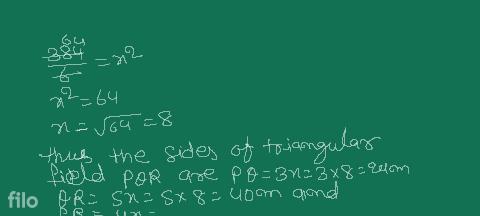 64
384
/6 = x²
x² = 64
x = √64 = 8
thus the sides of triangular
field PQR are PQ = 3x = 3×8 = 24m
QR = 5x = 5×8 = 40m and
PR = 4x =
filo